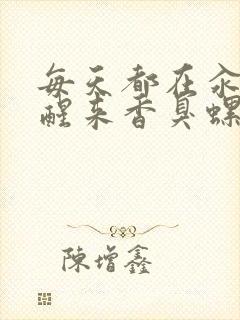 每天都在汆
醒来香臭螺
陳增鑫